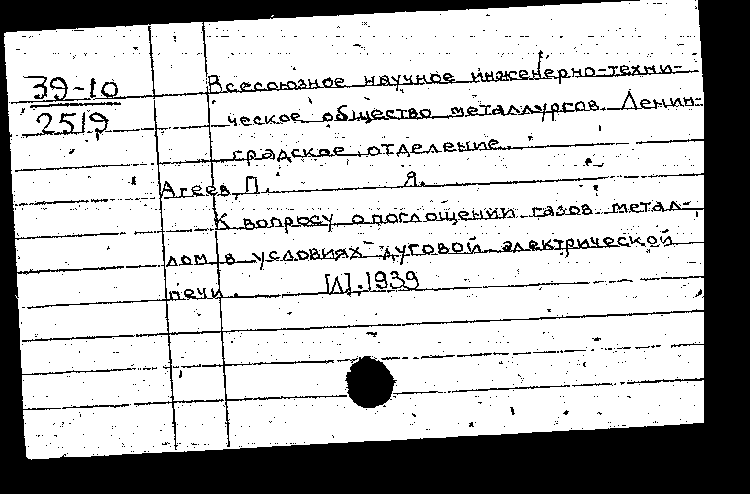 39-10
2519
Всесоюзное научное инженерно-техни-
ческое общество металлургов. Ленин-
градское отделение.
Агеев, П. Я.
К вопросу о поглощении газов метал-
лом в условиях дуговой электрической
печи. [Л], 1939